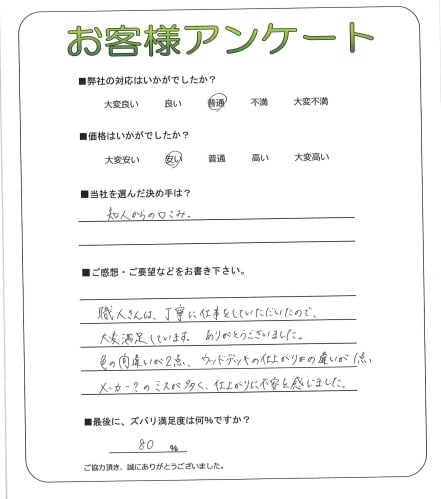 お客様アンケート
■弊社の対応はいかがでしたか？
大変良い 良い 普通 不満 大変不満
■価格はいかがでしたか？
大変安い 安い 普通 高い 大変高い
■当社を選んだ決め手は？
知人からの口こみ。
■ご感想・ご要望などをお書き下さい。
職人さんは、丁寧に仕事をしていただいたので、
大変満足しています。 ありがとうございました。
色の間違いが2点、ウッドデッキの仕上がりの違いが1点、
メーカー？のミスが多く、仕上がりに不安を感じました。
■最後に、ズバリ満足度は何%ですか？
80 %
ご協力頂き、誠にありがとうございました。